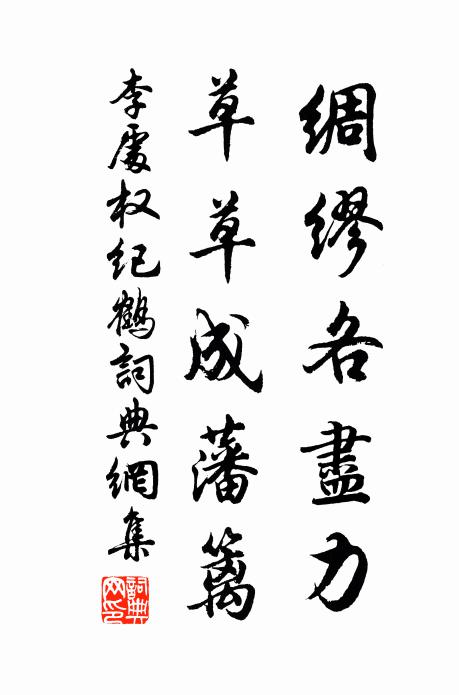 綢繆各盡力
草草成藩籬
李處权纪鶴詞典網集
詞典网印